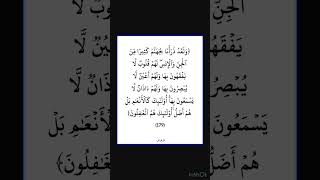 ﴿وَلَقَدْ ذَرَأْنَا لِجَهَنَّمَ كَثِيرًا مِّنَ
الْجِنِّ وَالْإِنسِ لَهُمْ قُلُوبٌ لَّا
يَفْقَهُونَ بِهَا وَلَهُمْ أَعْيُنٌ لَّا
يُبْصِرُونَ بِهَا وَلَهُمْ ءَاذَانٌ لَّا
يَسْمَعُونَ بِهَا أُولَٰئِكَ كَالْأَنْعَٰمِ بَلْ
هُمْ أَضَلُّ أُولَٰئِكَ هُمُ الْغَٰفِلُونَ﴾
(179)